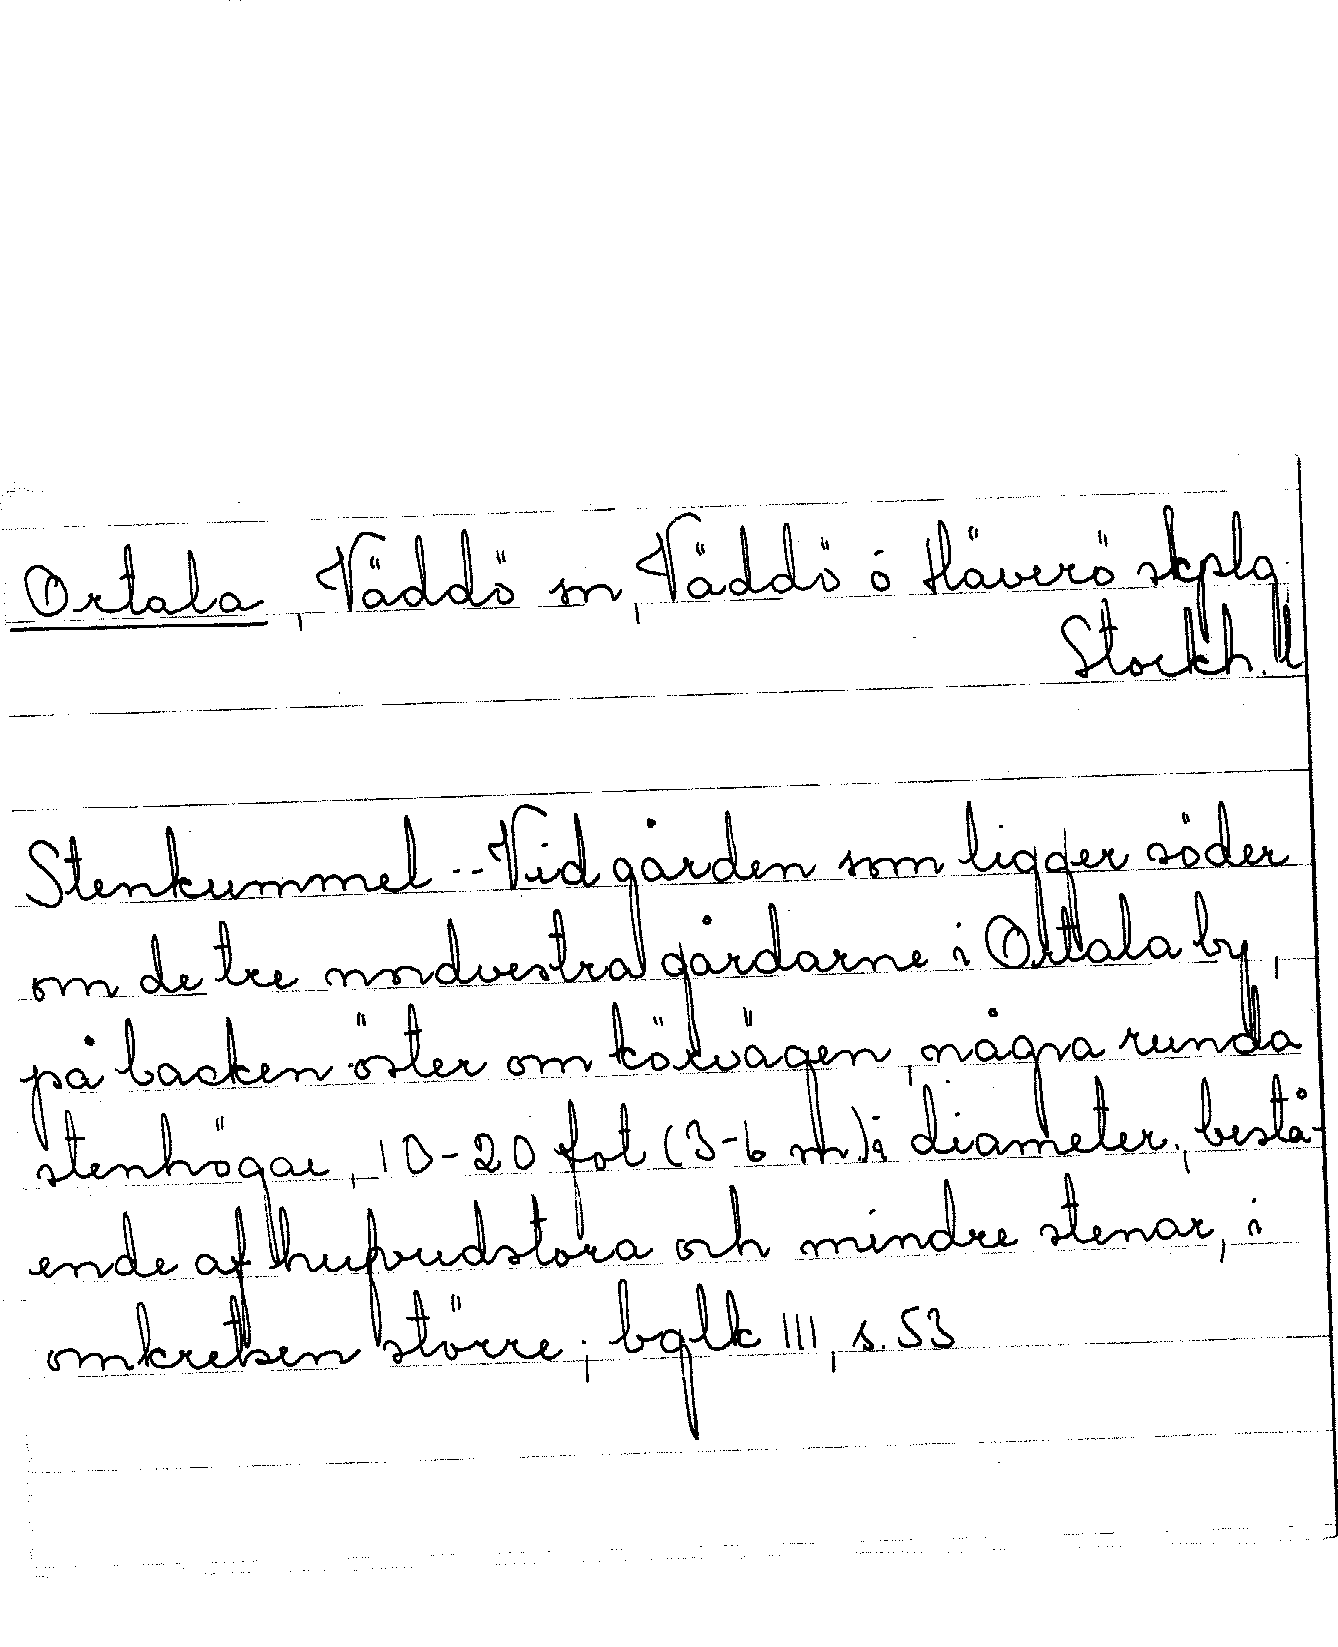 Ortala, Väddö sn, Väddö ó Häverö skplg
Stockh. l
Stenkummel -- Vid gården som ligger söder
om de tre nordvestra gårdarne i Ortala by,
på backen öster om körvägen, några runda
stenhögar, 10-20 fot (3-6 m) i diameter, bestå-
ende af hufvudstora och mindre stenar, i
omkretsen större; bglk III, s. 53